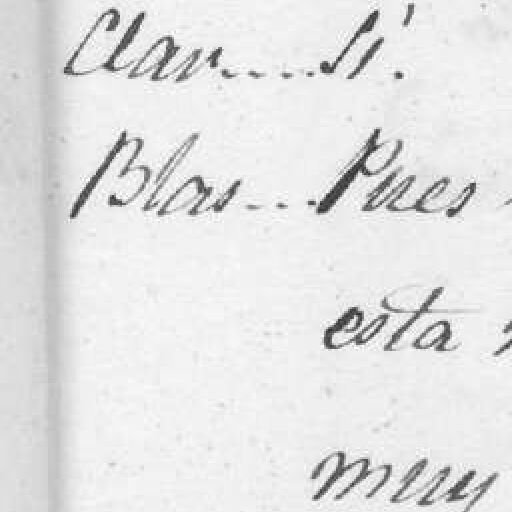 Clar.....Si.
Blas....Pues
esta
muy